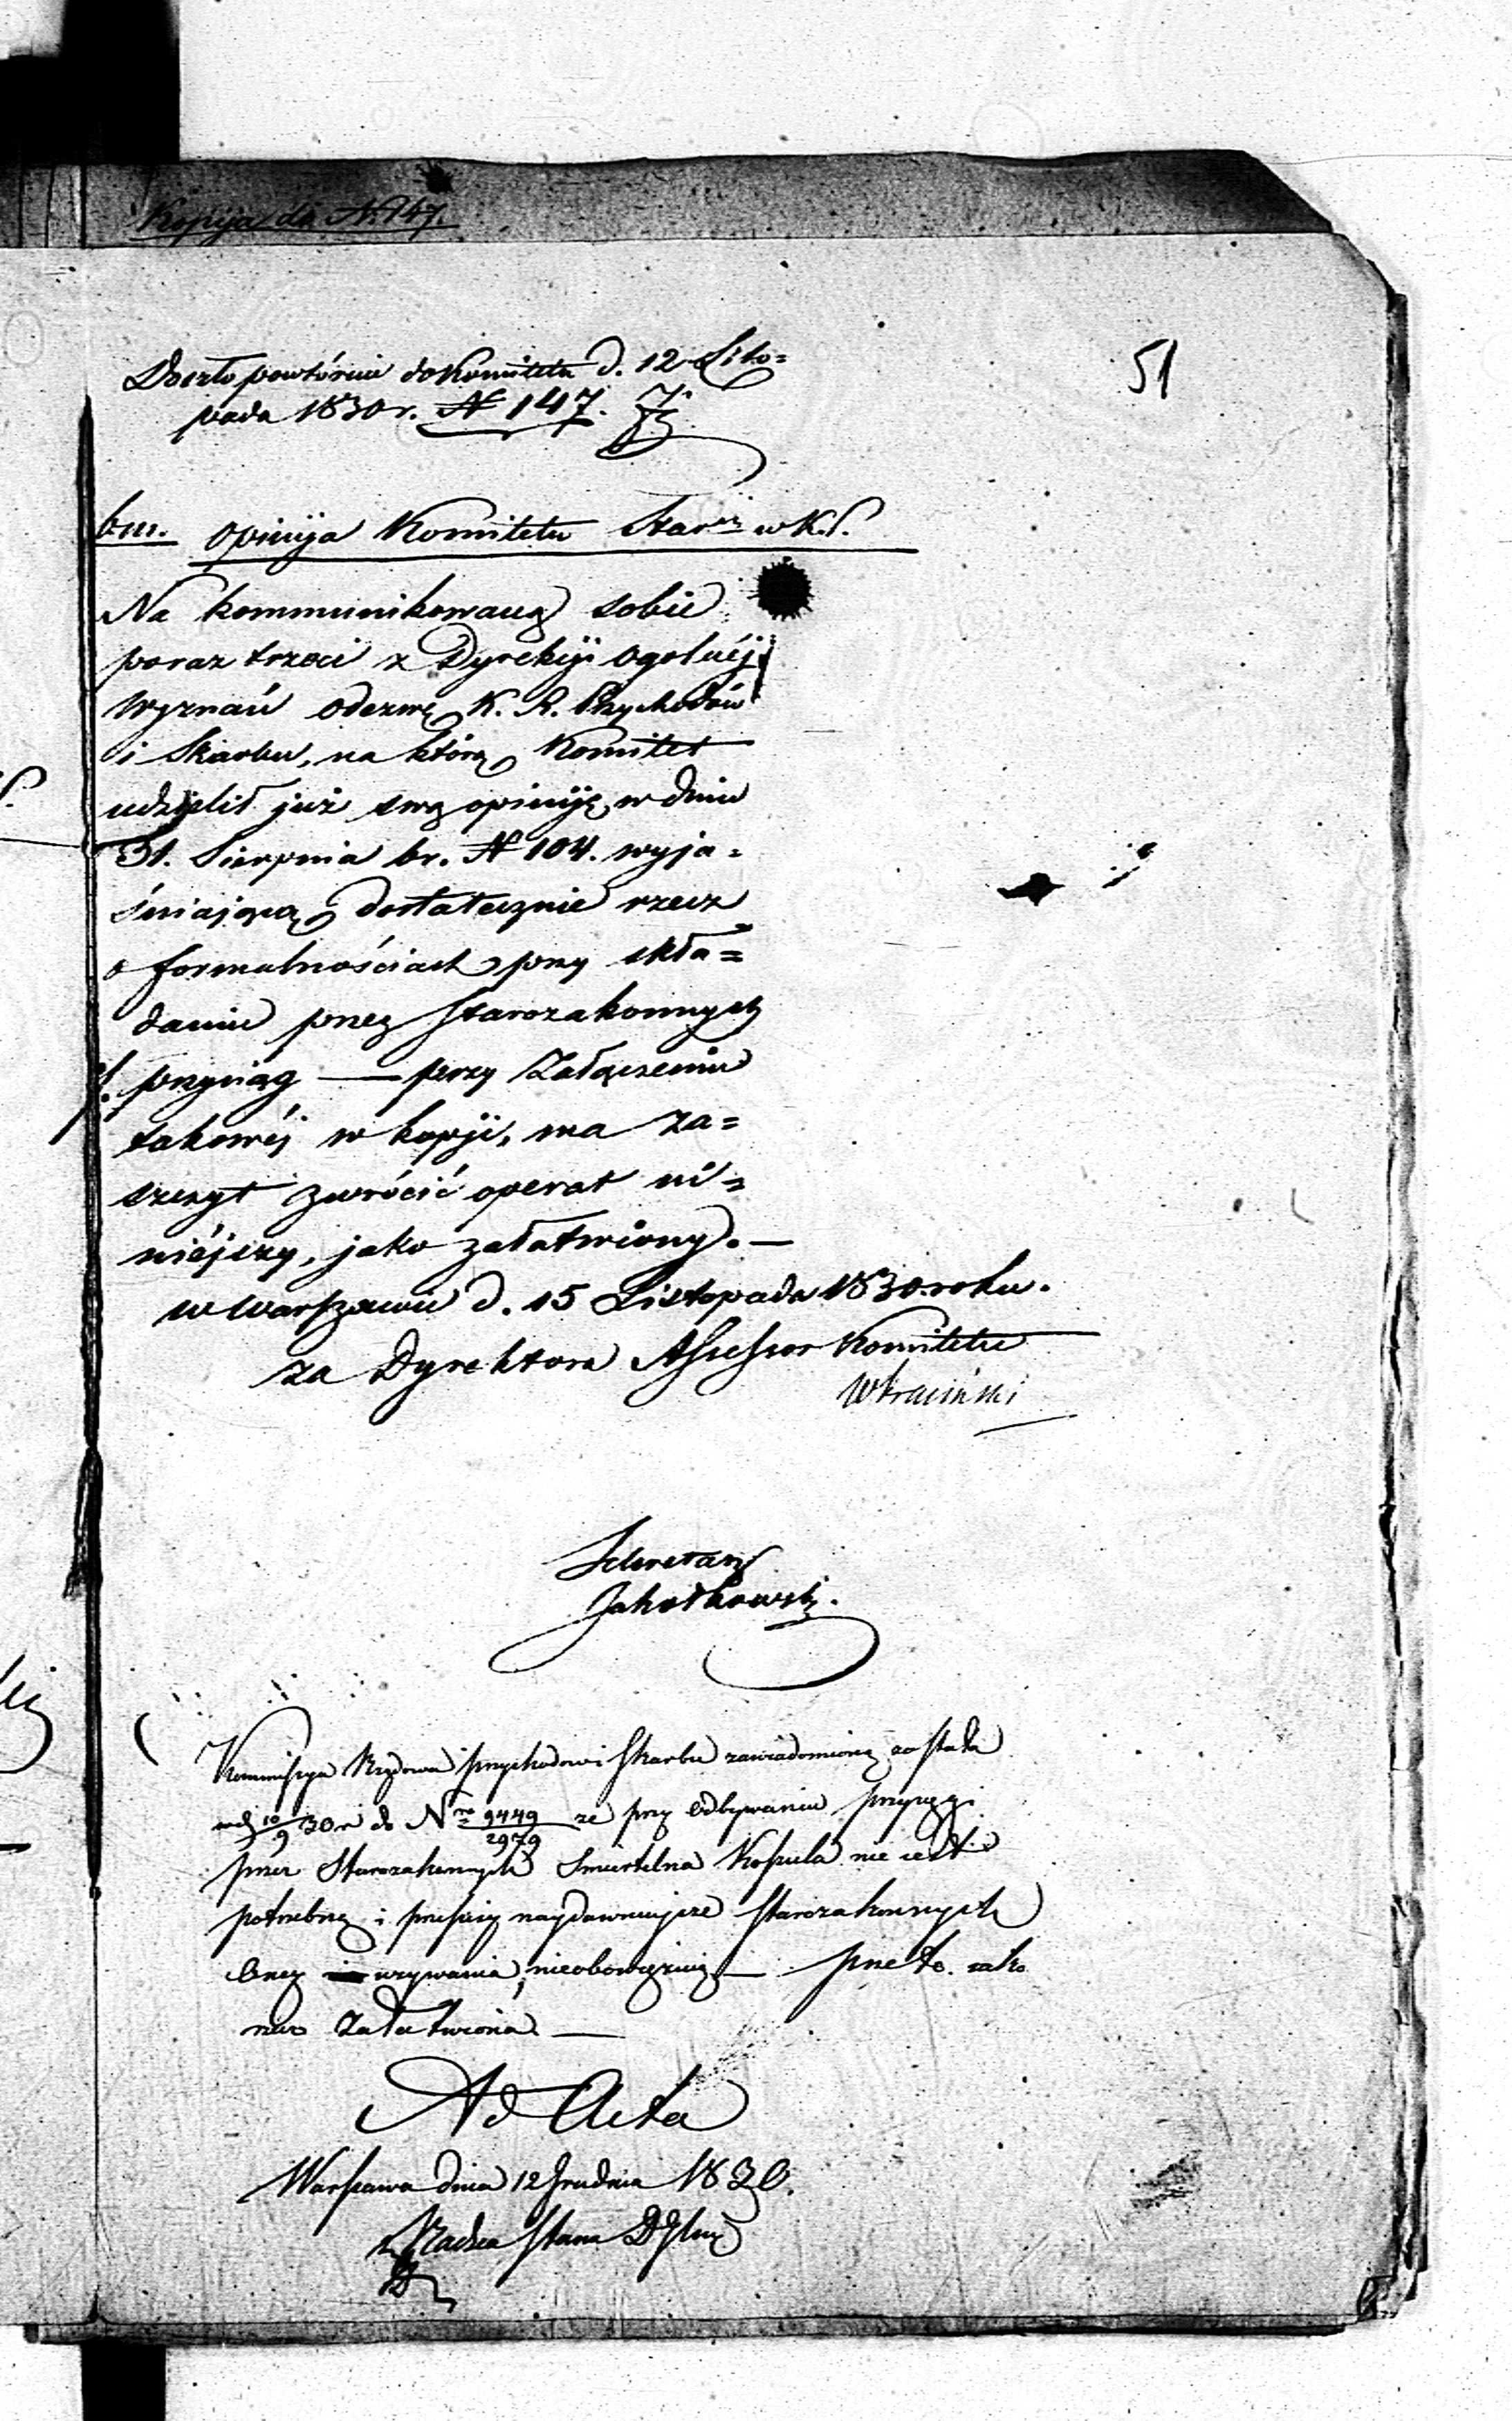 Kopija do N. 147.
51
Doszło powtórnie do Komitetu d. 12 Listo=
pada 1830 r. N 147.
bm. Opinija Komitetu Star. w K. P.
Na kommunikowaną sobie
poraz trzeci z Dyrekcji Ogolnéj
Wyznań odezwę K. R. Przychodów
i Skarbu, na którą Komitet
udzielił już swą opiniję w dniu
31. Sierpnia br. N 104. wyja=
śniającą dostatecznie rzecz
o formalnościach przy skła=
daniu przez Starozakonnych
przysiąg — przy Załączeniu
takowéj w kopji, ma za=
szczyt zwrócić operat ni=
niéjszy, jako załatwiony. —
w Warszawie d. 15 Listopada 1830 roku.
za Dyrektora Assessor Komitetu
Sekretarz
Kommissya Rządowa Przychodow i Skarbu zawiadomioną została
30 r do N 9449/2979 że przy odbywaniu przysęgi
przez Starozakonnych Smiertelna Koszula nie iest
potrzebną i przepisy naydawnieysze Starozakonnych
oney używania, nieobowięzuią — przeto. iako
iuz Załatwiona —
Ad Acta
Warszawa dnia 12 Grudnia 1830.
Radca Stanu